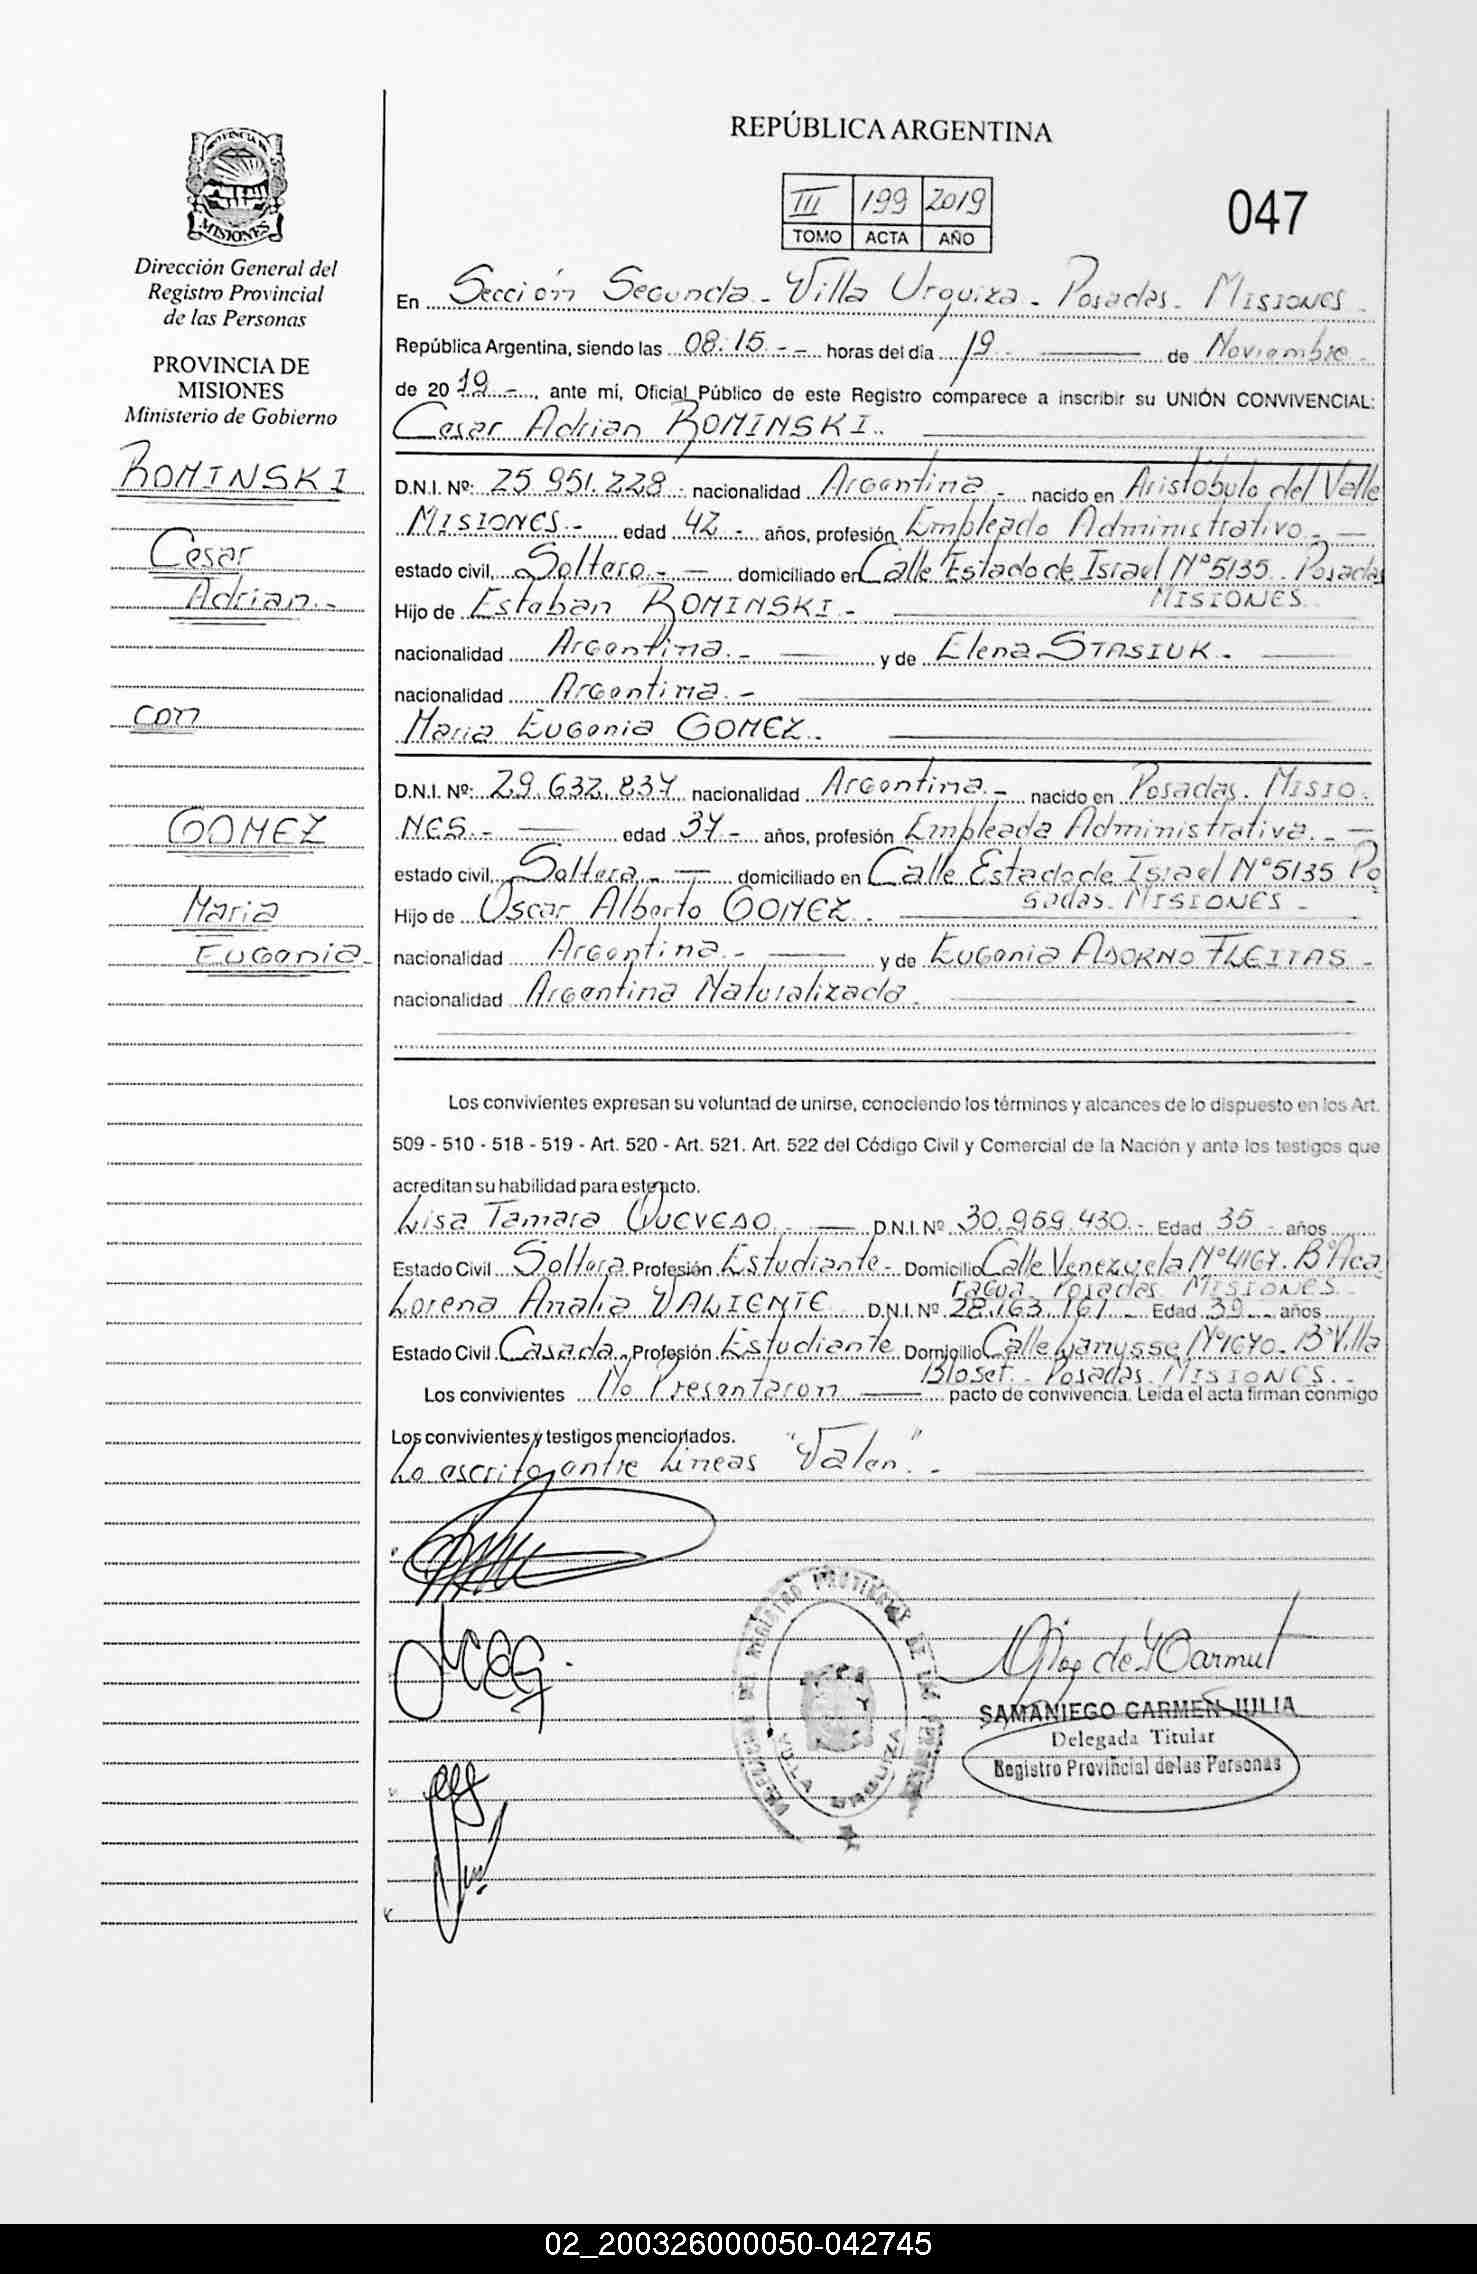 PROVINCIA DE
MISIONES
Dirección General del
Registro Provincial
de las Personas
PROVINCIA DE
MISIONES
Ministerio de Gobierno
ROMINSKI
Cesar
Adrian.-
con
GOMEZ
Maria
Eugenia.-
REPÚBLICA ARGENTINA
III 199 2019
TOMO ACTA AÑO
047
En Sección Segunda - Villa Urquiza - Posadas - MISIONES -
República Argentina, siendo las 08:15 - - horas del día 19 - de Noviembre -
de 2019 -, ante mí, Oficial Público de este Registro comparece a inscribir su UNIÓN CONVIVENCIAL:
Cesar Adrian ROMINSKI.-
D.N.I. Nº: 25.951.228.- nacionalidad Argentina.- nacido en Aristóbulo del Valle
MISIONES.- edad 42 - años, profesión Empleado Administrativo.- -
estado civil, Soltero.- - domiciliado en Calle Estado de Israel Nº 5135. Posadas
MISIONES.
Hijo de Esteban ROMINSKI.-
nacionalidad Argentina.- y de Elena STASIUK.-
nacionalidad Argentina.-
Maria Eugenia GOMEZ.-
D.N.I. Nº: 29.632.837 nacionalidad Argentina.- nacido en Posadas. MISIO-
NES.- edad 37 - años, profesión Empleada Administrativa.- -
estado civil, Soltera.- - domiciliado en Calle Estado de Israel Nº 5135 Po
sadas. MISIONES -
Hijo de Oscar Alberto GOMEZ.-
nacionalidad Argentina.- y de Eugenia ADORNO FLEITAS -
nacionalidad Argentina Naturalizada.
Los convivientes expresan su voluntad de unirse, conociendo los términos y alcances de lo dispuesto en los Art.
509 - 510 - 518 - 519 - Art. 520 - Art. 521. Art. 522 del Código Civil y Comercial de la Nación y ante los testigos que
acreditan su habilidad para este acto.
Lisa Tamara QUEVEDO.- - D.N.I. Nº 30.959.430.- Edad 35 - años
Estado Civil Soltera Profesión Estudiante - Domicilio Calle Venezuela Nº 4167. Bº Aca
ragua. Posadas MISIONES.-
Lorena Analia VALIENTE D.N.I. Nº 28.163.161 - Edad 39 - años
Estado Civil Casada - Profesión Estudiante Domicilio Calle Nº 1670 - Bº Villa
Bloset.- Posadas. MISIONES.-
Los convivientes No Presentaron pacto de convivencia. Leída el acta firman conmigo
Los convivientes y testigos mencionados.
Lo escrito entre Lineas "Valen".-
VILLA URQUIZA
SAMANIEGO CARMEN JULIA
Delegada Titular
Registro Provincial de las Personas
02_200326000050-042745